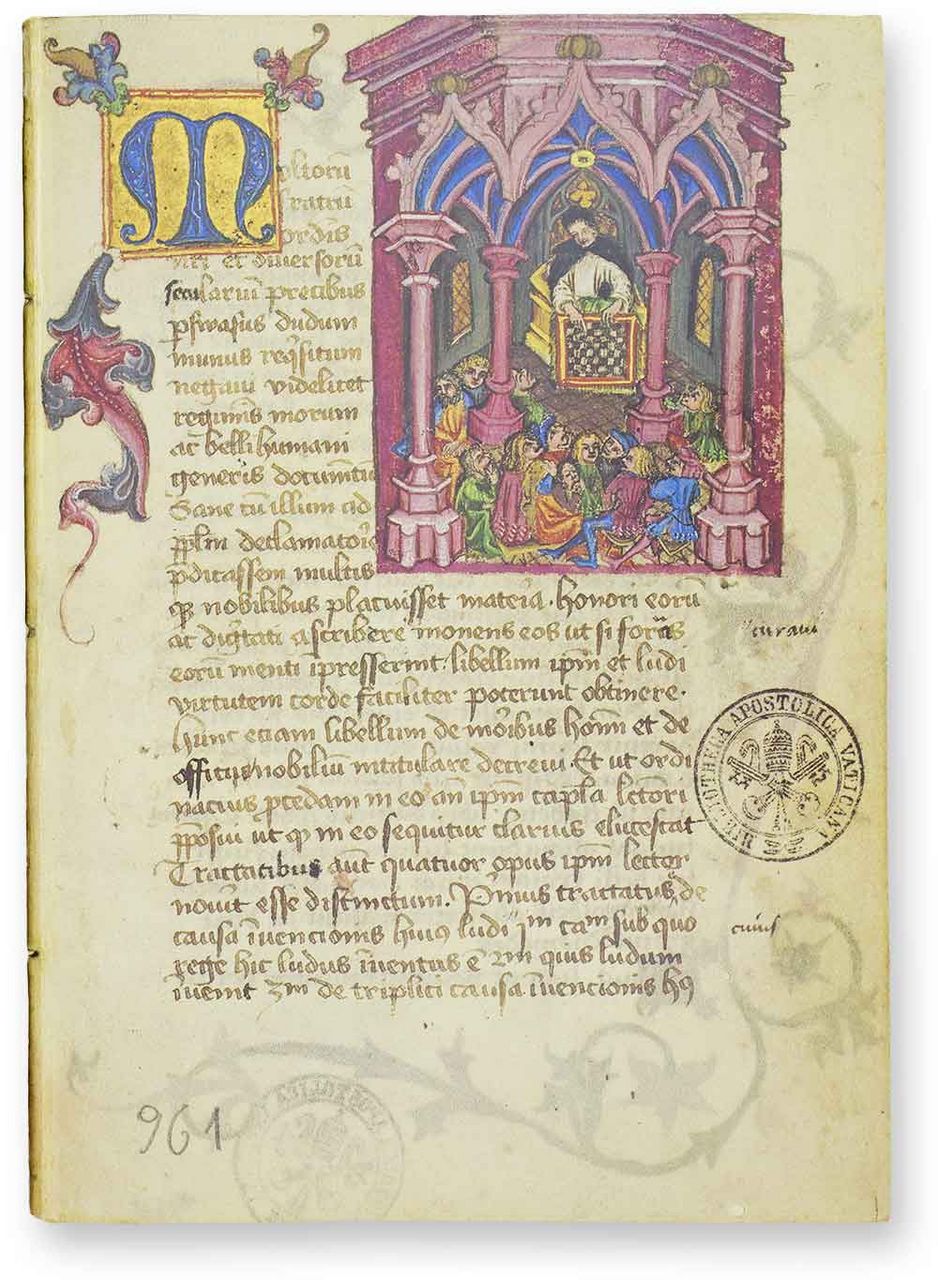 Moltorū
fratrū
ordīs
nri et diuersorū
seculariū precibus
psuasus dudum
munus reqsitum
negaui videlicet
regimīs morum
ac belli humani
generis documētū
Sane cū illum ad
pplm declamatorie
pdicassem multis
qz nobilibus placuisset materia. honori eorū
ac digtati ascribere monens eos ut si formas
eorū menti īpresserint. libellum ipm et ludi
virtutem corde faciliter poterunt obtinere.
hunc eciam libellum de moribus hoīm et de
officijs nobiliū intitulare decreui. Et ut ordi
nacius pcedam in eo an ipm capla lectori
pposui ut qd in eo sequitur clarius elucescat
Tractatibus aūt quatuor opus ipm lector
nouit esse distinctum. Pimus tractatus de
causa īuencionis huiꝰ ludi 1m cam sub quo
rege hic ludus īuentus ē 2m quis ludum
īuenit 3m de triplici causa īuencionis hꝰ
curaui
cuius
BIBLIOTHECA APOSTOLICA VATICANA
961